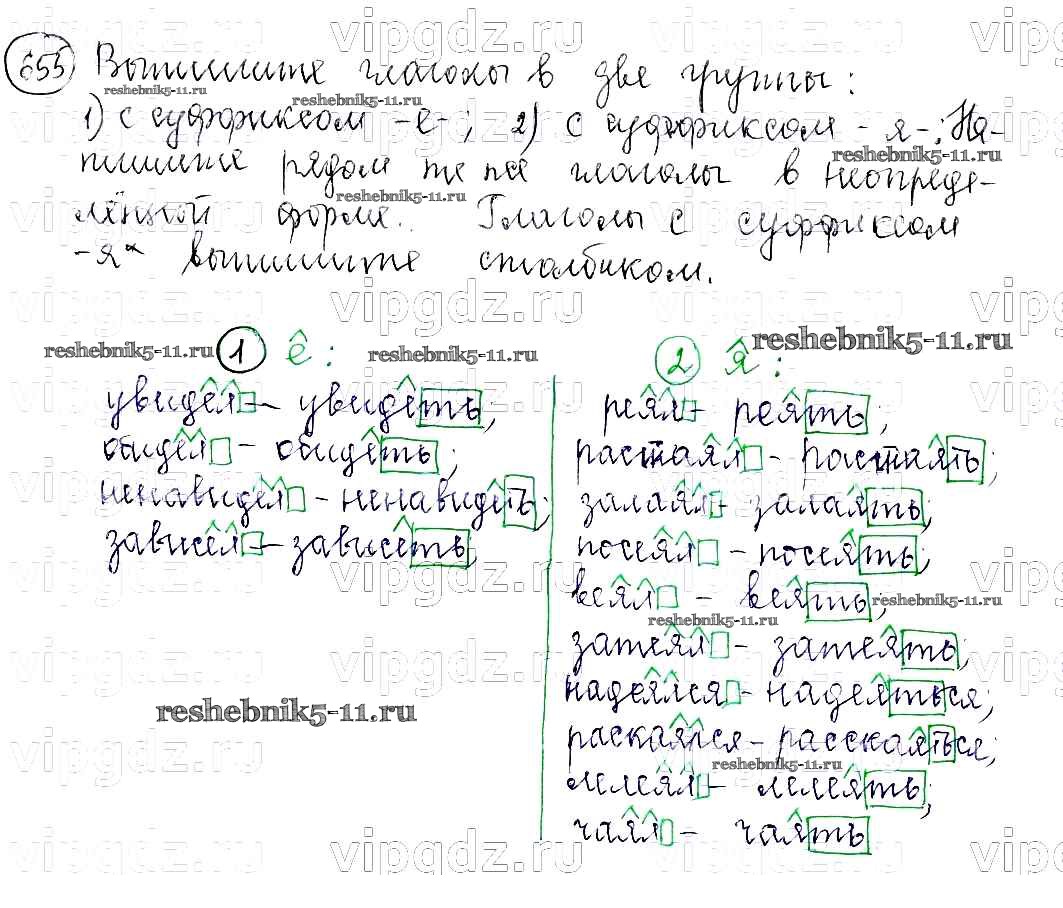 655 Выпишите глаголы в две группы:
1) с суффиксом -е-; 2) с суффиксом -я-. На-
пишите рядом те же глаголы в неопреде-
лённой форме. Глаголы с суффиксом
-я- выпишите столбиком.
1 е:
увидел - увидеть;
обидел - обидеть;
ненавидел - ненавидеть;
зависел - зависеть;
2 я:
реял - реять;
растаял - растаять;
залаял - залаять;
посеял - посеять;
веял - веять;
затеял - затеять;
надеялся - надеяться;
раскаялся - расскаяться;
лелеял - лелеять;
чаял - чаять
vipgdz.ru
reshebnik5-11.ru